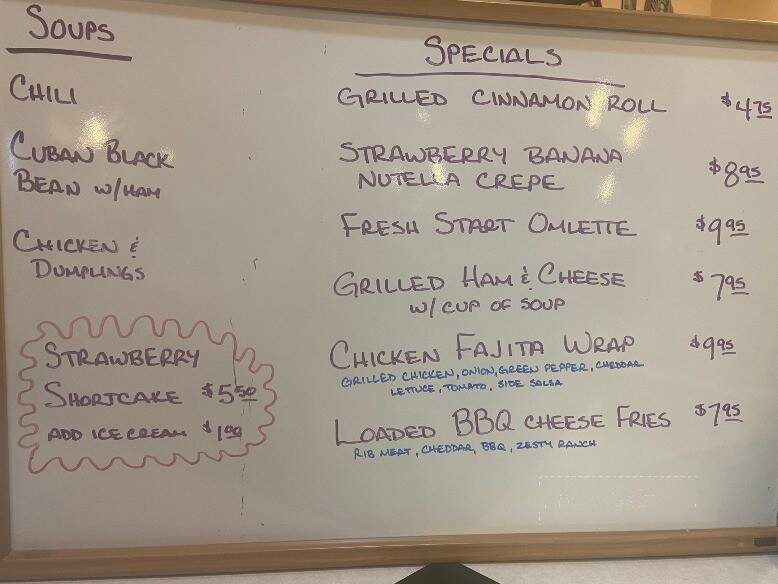 SOUPS
CHILI
CUBAN BLACK
BEAN W/HAM
CHICKEN &
DUMPLINGS
STRAWBERRY
SHORTCAKE $5.50
ADD ICE CREAM $1.00
SPECIALS
GRILLED CINNAMON ROLL $4.75
STRAWBERRY BANANA
NUTELLA CREPE $8.95
FRESH START OMLETTE $9.95
GRILLED HAM & CHEESE $7.95
W/ CUP OF SOUP
CHICKEN FAJITA WRAP $9.95
GRILLED CHICKEN, ONION, GREEN PEPPER, CHEDDAR
LETTUCE, TOMATO, SIDE SALSA
LOADED BBQ CHEESE FRIES $7.95
RIB MEAT, CHEDDAR, BBQ, ZESTY RANCH